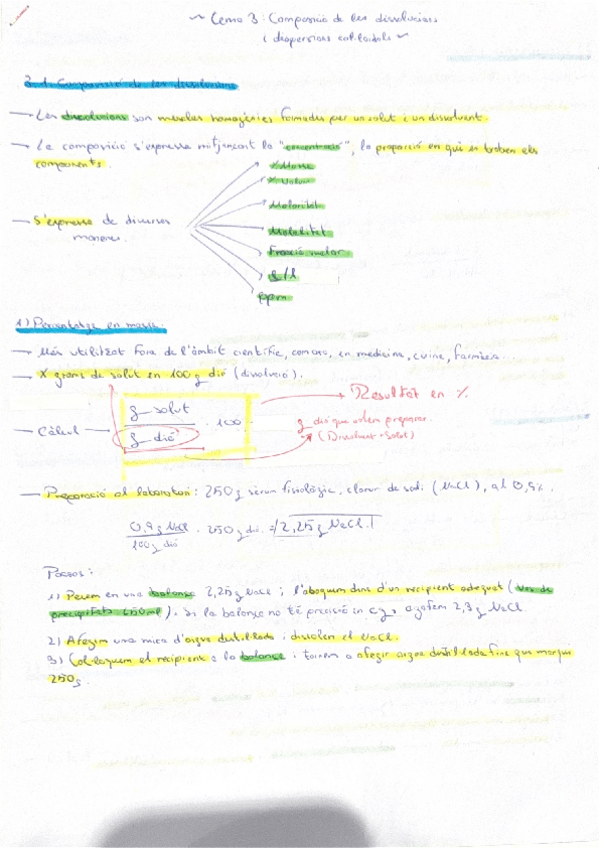 ~ Tema 3: Composició de les dissolucions
i dispersions col·loidals ~
3.1. Composició de les dissolucions
→ Les dissolucions són mescles homogènies formades per un solut i un dissolvent.
→ La composició s'expressa mitjançant la "concentració", la proporció en què es troben els
components.
→ S'expressa de diverses
maneres.
% Massa
% Volum
Molaritat
Molalitat
Fracció molar
g/l
ppm
1) Percentatge en massa
→ Més utilitzat fora de l'àmbit científic, comerç, en medicina, cuina, farmàcia...
→ X grams de solut en 100 g dió (dissolució).
→ Càlcul →
g solut
g dió
· 100
→ Resultat en %
g dió que volem preparar.
(Dissolvent + Solut)
→ Preparació al laboratori: 250 g sèrum fisiològic, clorur de sodi (NaCl), al 0,9%.
0,9 g NaCl
100 g dió
· 250 g dió = 2,25 g NaCl
Passos:
1) Pesem en una balança 2,25 g NaCl; l'aboquem dins d'un recipient adequat (vas de
precipitats 250 ml). Si la balança no té precisió en cg, agafem 2,3 g NaCl
2) Afegim una mica d'aigua destil·lada i dissolem el NaCl.
3) Col·loquem el recipient a la balança i tornem a afegir aigua destil·lada fins que marqui
250 g.